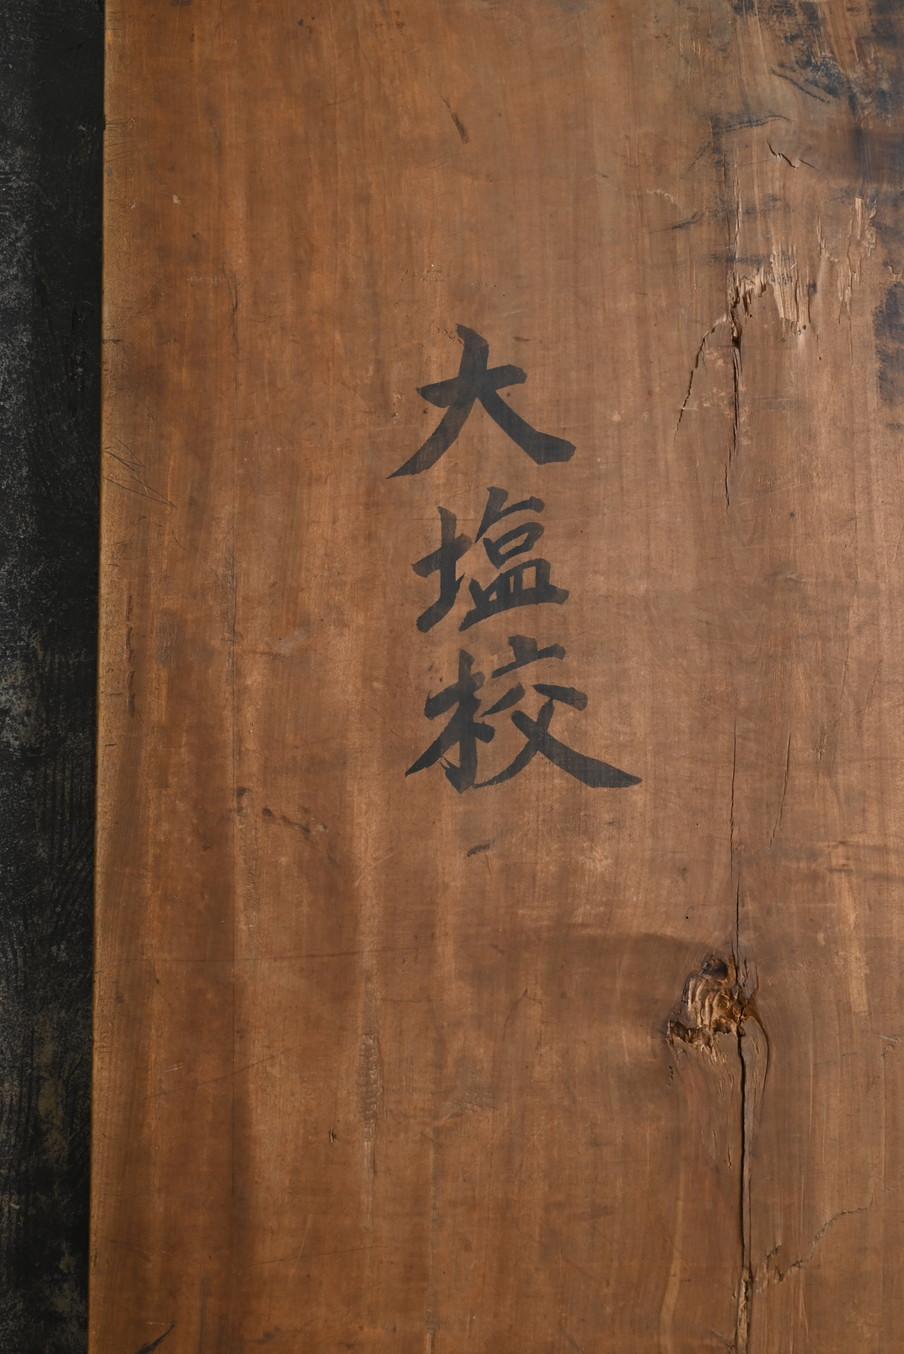 大塩校